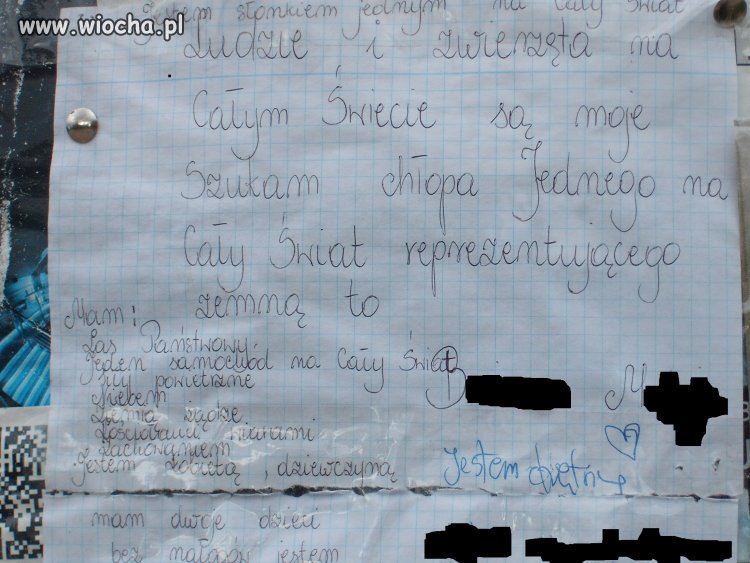 www.wiocha.pl
Jestem słonkiem jednym na Cały Świat
Ludzie i zwierzęta na
Całym Świecie są moje
Szukam chłopa Jednego na
Cały Świat reprezentującego
zemną to
Mam:
Las Państwowy.
Jeden samochód na Cały Świat
siły powietrzne
Niebem
Ziemią rządzę
Kościołami
zachowaniem
Jestem kobietą, dziewczyną
B M
Jestem
mam dwoje dzieci
bez nałogów jestem